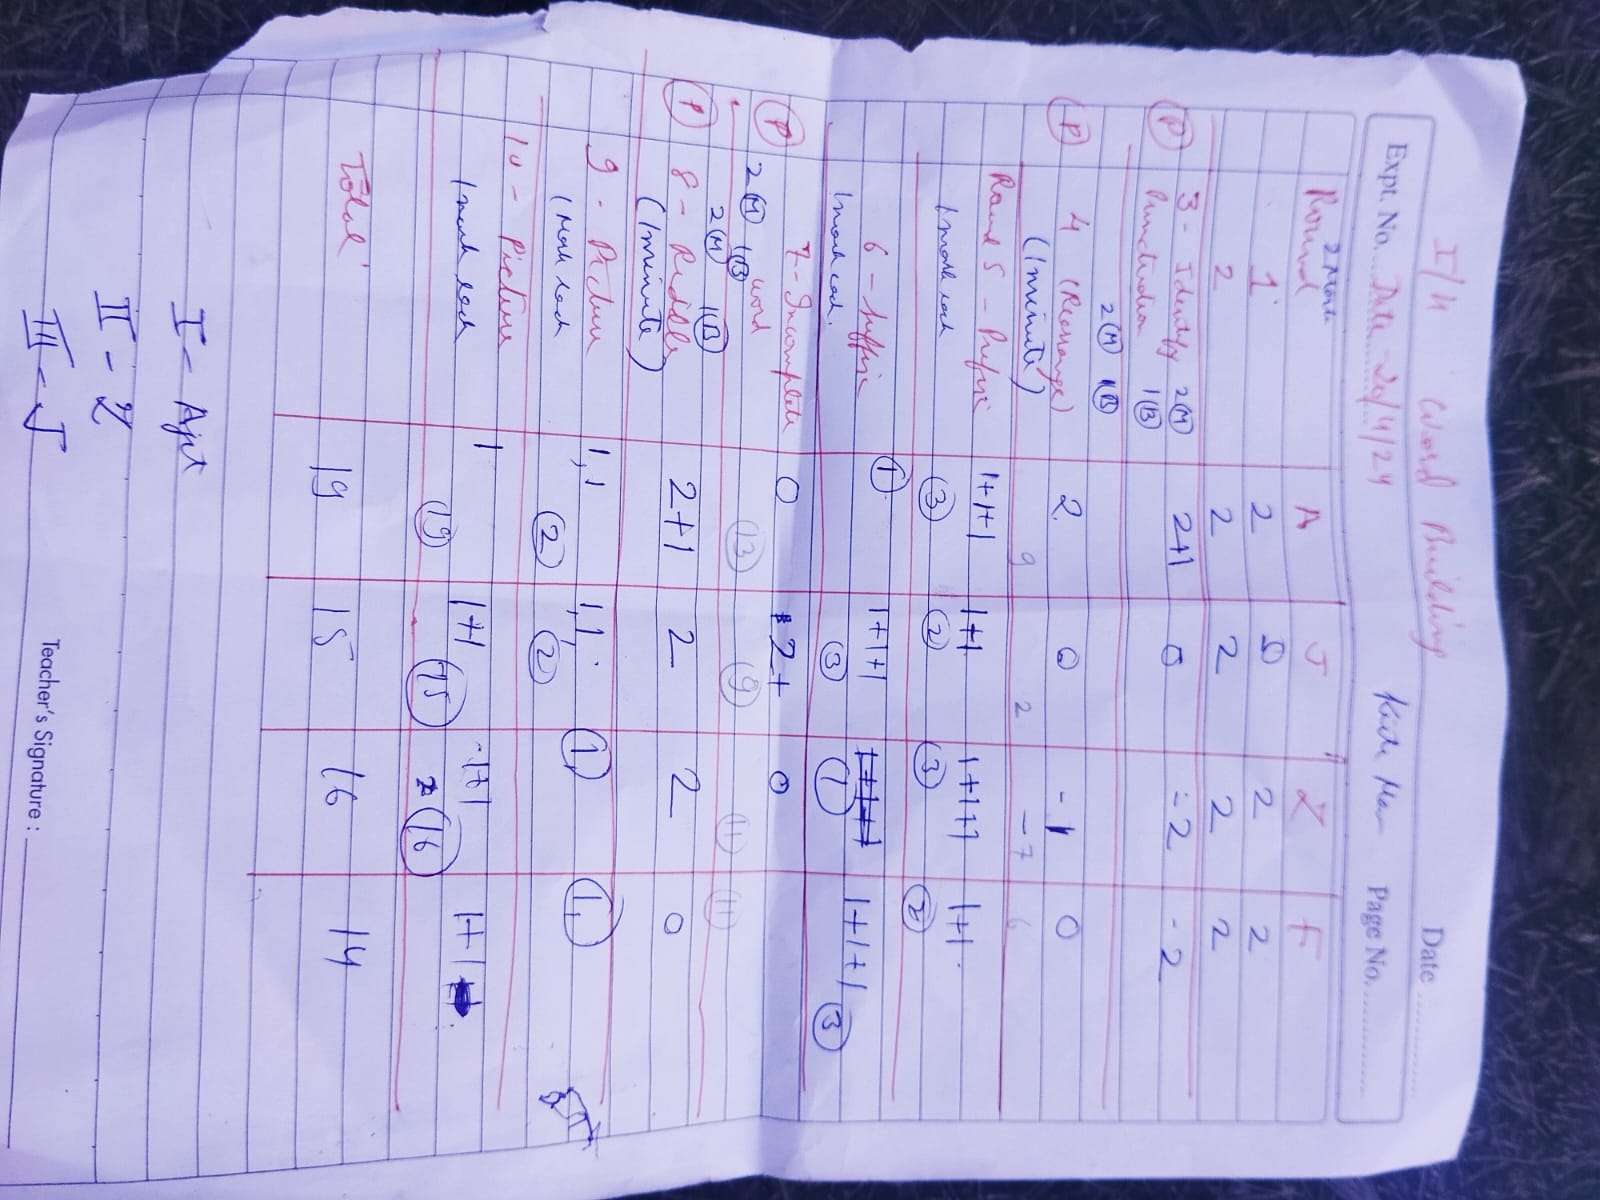 I/H Word Building
Date
Expt. No. Date - 20/4/24 Page No.
Round A J Z F
2 Mark
1 2 0 2 2
2 2 2 2 2
P 3 - Identify 2(M) 2+1 0 -2 -2
Punctuation 1(B)
2(M) 1(B)
P 4 (Rearrange) 2 0 -1 0
(1 minute) 9 2 -7 6
Round 5 - Prefix 1+1+1 1+1 1+1+1 1+1
1 mark each 3 2 3 2
6 - Suffix 1 1+1+1 1+1+1 1+1+1
1 mark each. 3 1 3
P 7 - Incomplete 0 2+ 0
word
2(M) 1(B) 13 9 11 11
2(M) 1(B)
P 8 - Riddle 2+1 2 2 0
(1 minute)
9 - Picture 1,1 1,1 1 1
1 Mark each 2 2
10 - Picture 1 1+1 1+1 1+1
1 mark each 19 15 16
Total 19 15 16 14
I - Ajit
II - Z
III - J
Teacher's Signature :